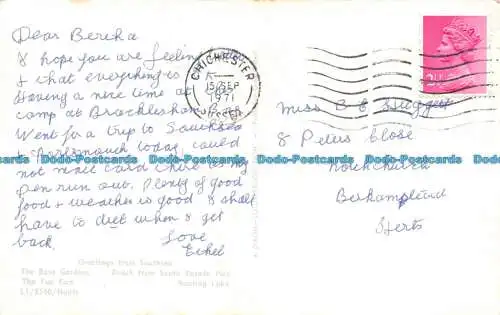 Dear Bertha
I hope you are feeling
& what everything is
Having a nice time at
camp at Bracklesham Bay
Went for a trip to Southsea
& Portsmouth today, could
not mail card there as my
pen run out. Plenty of good
food & weather is good I shall
have to diet when I get
back.
Love
Ethel
Greetings from Southsea
The Rose Gardens Beach from South Parade Pier
The Fun Fair Boating Lake
CHICHESTER
15 SEP
1971
SUSSEX
Miss B E Huggett
8 Peters Close
Northchurch
Berkhampstead
Herts
Dodo-Postcards Dodo-Postcards Dodo-Postcards Dodo-Postcards Dodo-Postcards